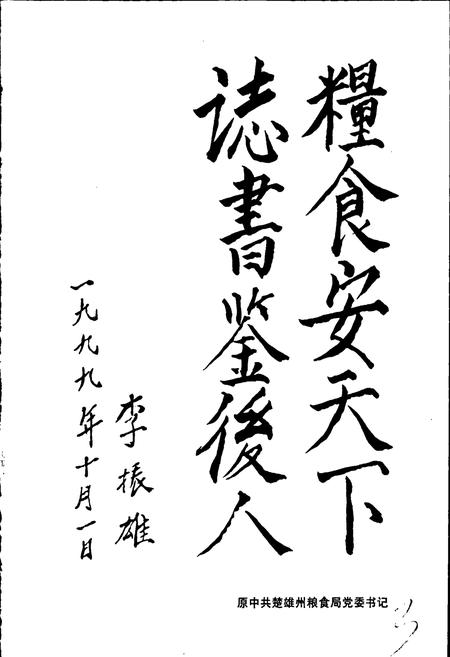 糧食安天下
誌書鉴後人
李振雄
一九九九年十月一日
原中共楚雄州粮食局党委书记